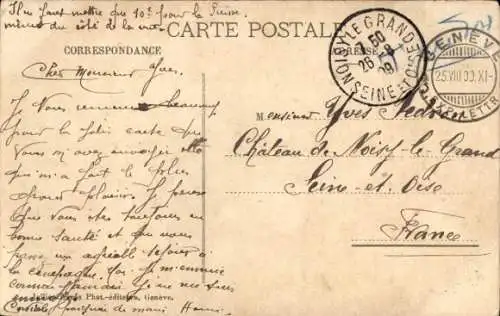 Il faut mettre que 10c pour la Suisse
même du côté de la vue
CARTE POSTALE
CORRESPONDANCE
ADRESSE
NOISY LE GRAND
26
SEINE ET OISE
GENÈVE
25.VIII.09.XI-
Cher Monsieur Yves.
Je Vous remercie beaucoup
pour la jolie carte que
Vous m'avez envoyée elle
qui m'a fait le plus
grand plaisir. Je pense
que vous êtes toujours en
bonne santé et que vous
un agréable séjour à
la campagne. Ici je m'ennuie
comme jamais Je ne me suis
Phot.-éditeurs, Genève.
Cordiale poignée de main
M onsieur Yves
Château de Noisy-le-Grand
Seine-et-Oise
France